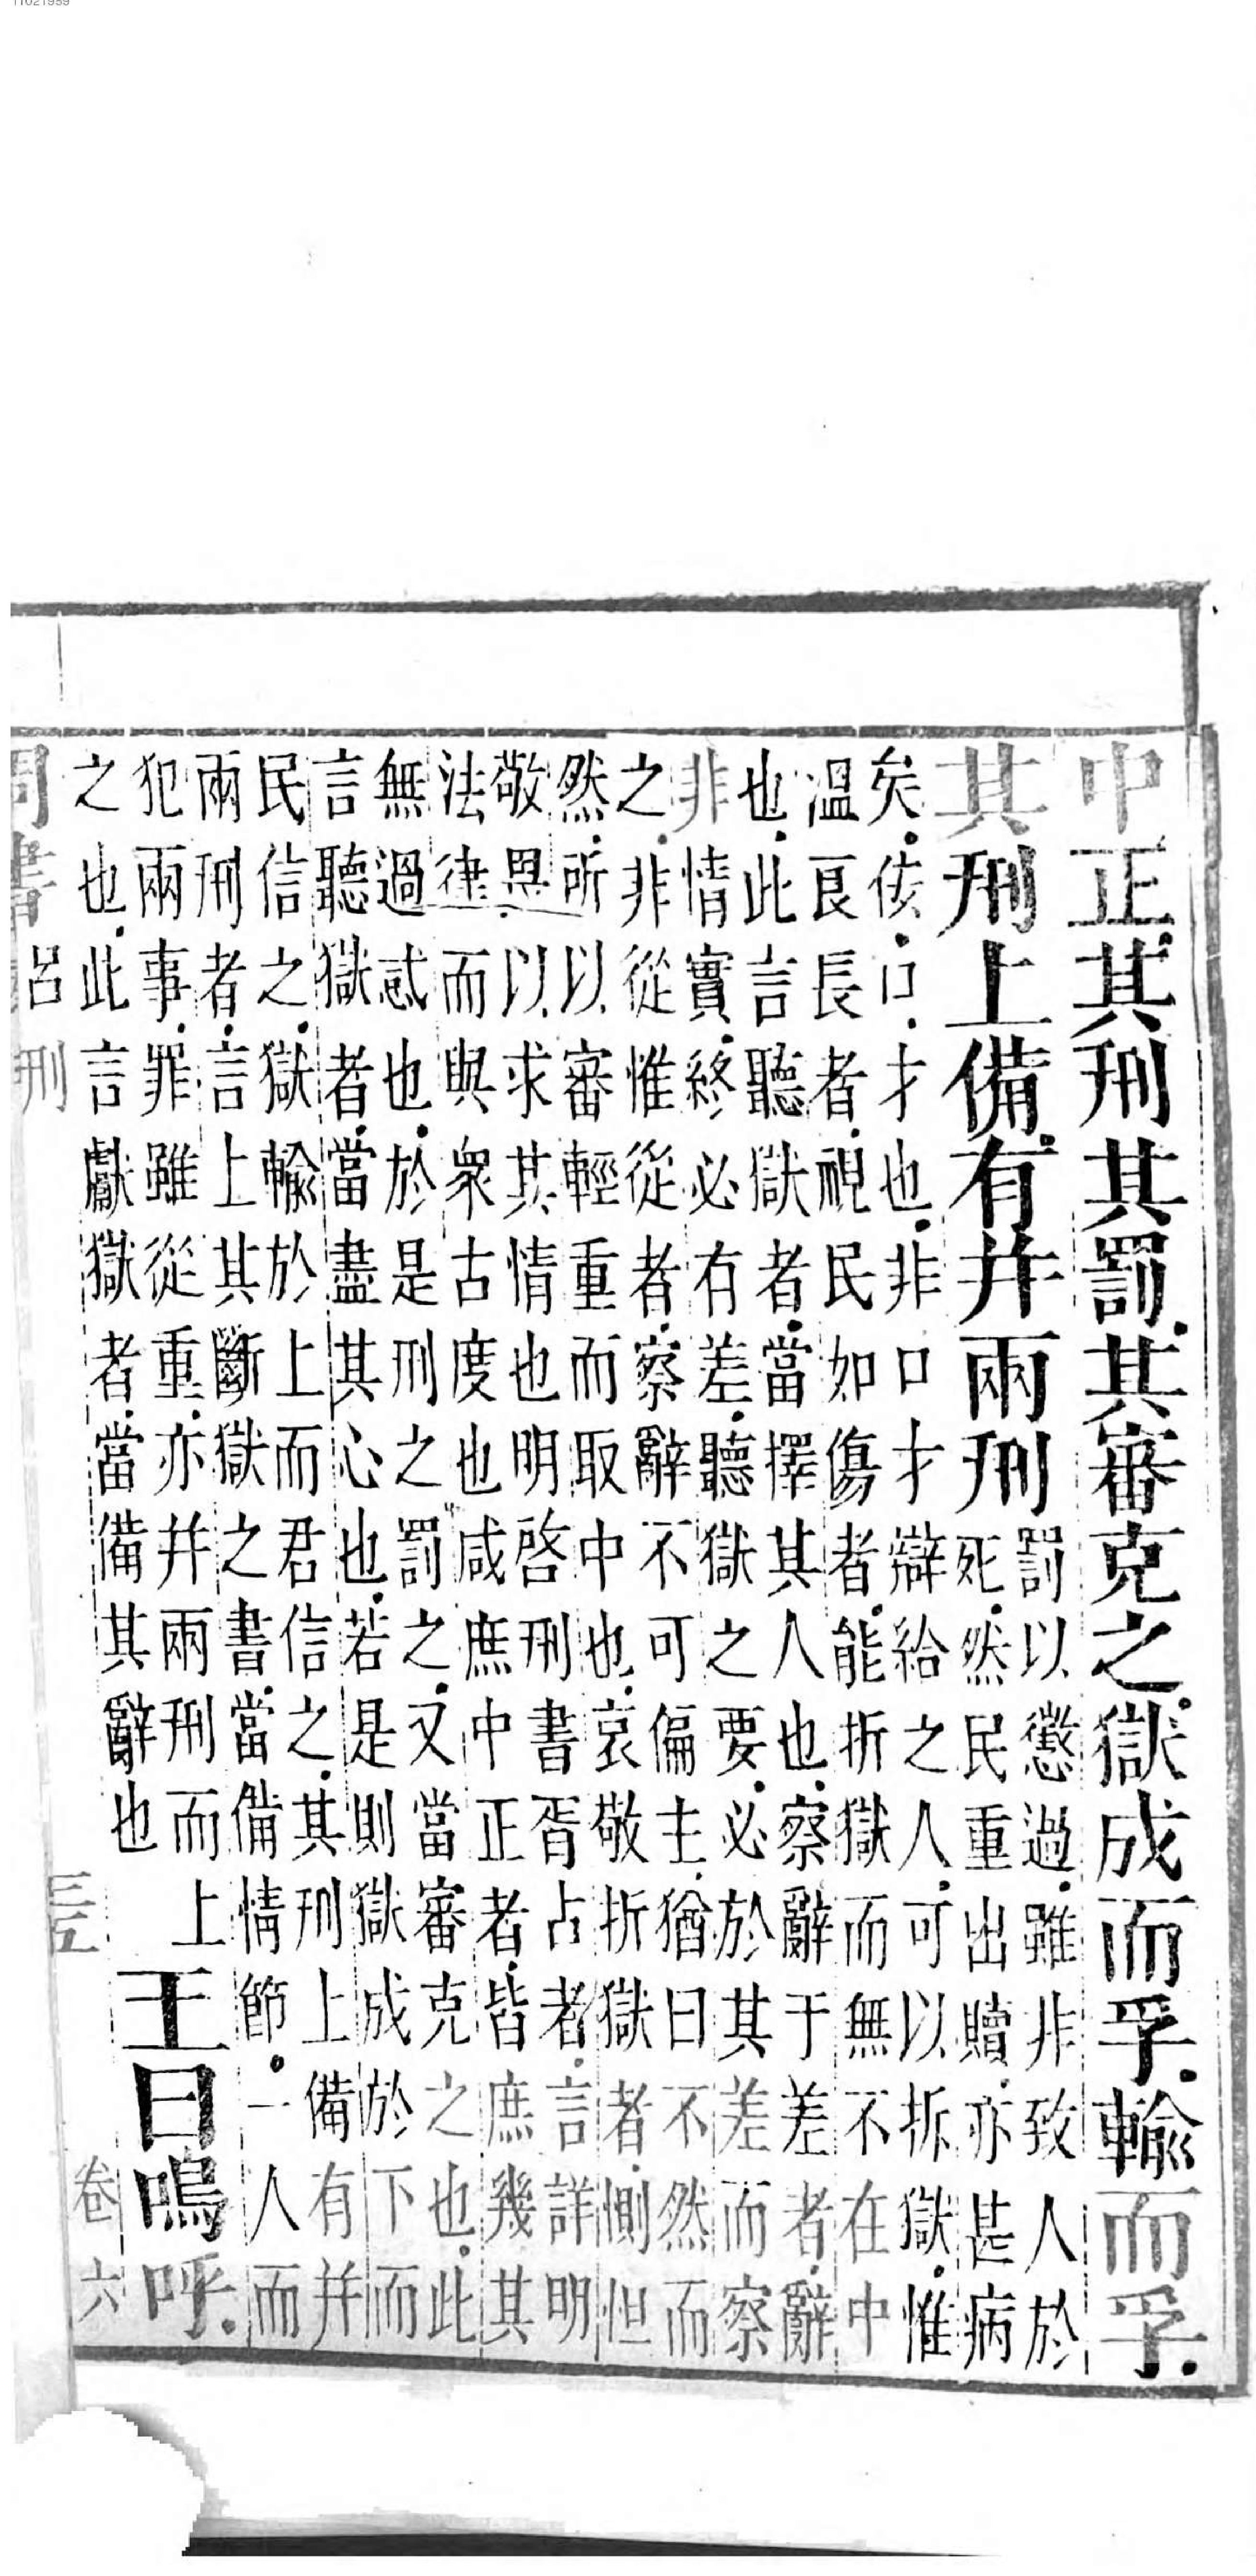 中正其刑其罰其審克之獄成而孚輸而孚
其刑上備有并兩刑
罰以懲過雖非致人於
死然民重出贖亦甚病
矣佞口才也非口才辯給之人可以拆獄惟
溫良長者視民如傷者能折獄而無不在中
也此言聽獄者當擇其人也察辭于差者辭
非情實終必有差聽獄之要必於其差而察
之非從惟從者察辭不可偏主猶曰不然而
然所以審輕重而取中也哀敬折獄者惻怛
敬畏以求其情也明啓刑書胥占者言詳明
法律而與衆古度也咸庶中正者皆庶幾其
無過忒也於是刑之罰之又當審克之也此
言聽獄者當盡其心也若是則獄成於下而
民信之獄輸於上而君信之其刑上備有并
兩刑者言上其斷獄之書當備情節一人而
犯兩事罪雖從重亦并兩刑而上
之也此言獻獄者當備其辭也
王曰嗚呼
周書 呂刑 三五 卷六